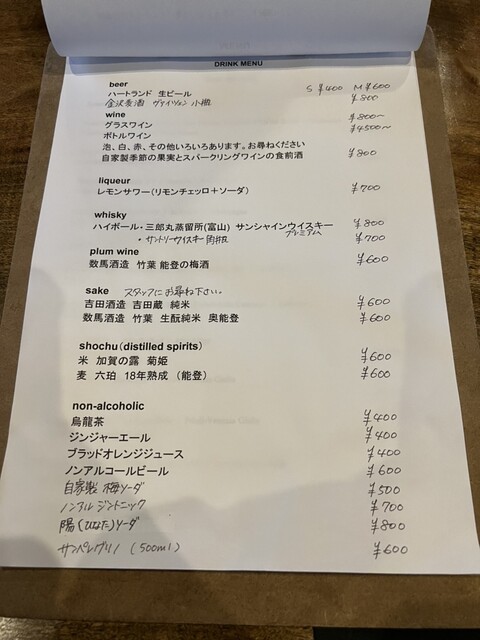 DRINK MENU
beer
ハートランド 生ビール S ¥400 M ¥600
金沢麦酒 ヴァイツェン 小瓶 ¥800
wine
グラスワイン ¥800~
ボトルワイン ¥4500~
泡、白、赤、その他いろいろあります。お尋ねください
自家製季節の果実とスパークリングワインの食前酒 ¥800
liqueur
レモンサワー(リモンチェッロ+ソーダ) ¥700
whisky
ハイボール・三郎丸蒸留所(富山) サンシャインウイスキー プレミアム ¥800
・サントリーウイスキー角瓶 ¥700
plum wine
数馬酒造 竹葉 能登の梅酒 ¥600
sake スタッフにお尋ね下さい。
吉田酒造 吉田蔵 純米 ¥600
数馬酒造 竹葉 生酛純米 奥能登 ¥600
shochu(distilled spirits)
米 加賀の露 菊姫 ¥600
麦 六珀 18年熟成 (能登) ¥600
non-alcoholic
烏龍茶 ¥400
ジンジャーエール ¥400
ブラッドオレンジジュース ¥400
ノンアルコールビール ¥600
自家製 梅ソーダ ¥500
ノンアル ジントニック ¥700
陽(ひなた)ソーダ ¥800
サンペレグリノ (500ml) ¥600